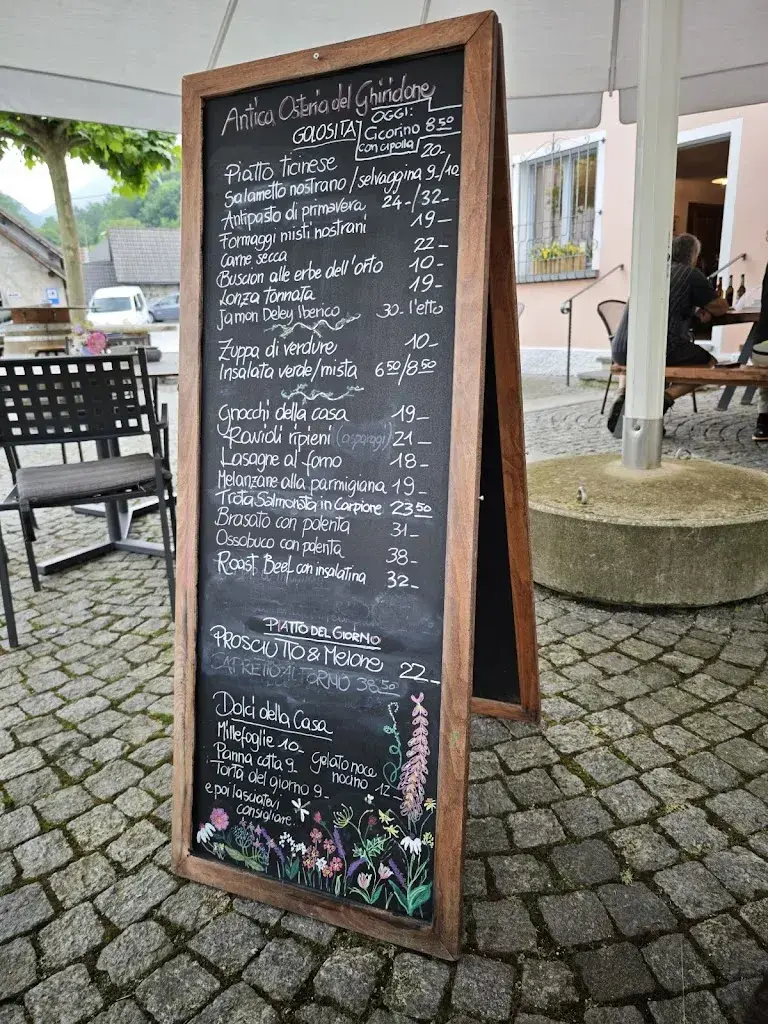 Antica Osteria del Ghiridone
GOLOSITÀ
OGGI:
Cicorino 8.50
con cipolla
Piatto ticinese 20.-
Salametto nostrano / selvaggina 9.-/10
Antipasto di primavera 24-/32-
Formaggi misti nostrani 19-
Carne secca 22-
Buscion alle erbe dell'orto 10-
Lonza tonnata 19-
Jamon Deley Iberico 30.- l'etto
Zuppa di verdure 10-
Insalata verde/mista 6 50/8 50
Gnocchi della casa 19-
Ravioli ripieni (asparagi) 21-
Lasagne al forno 18-
Melanzane alla parmigiana 19-
Trota Salmonata in Carpione 23 50
Brasato con polenta 31-
Ossobuco con polenta 38-
Roast Beef con insalatina 32-
PIATTO DEL GIORNO
PROSCIUTTO & Melone 22.-
CAPRETTO AL FORNO 38.50
Dolci della Casa
Millefoglie 10-
Panna cotta 9-
Gelato noce
nocino 12
Torta del giorno 9-
e poi lasciatevi
consigliare.